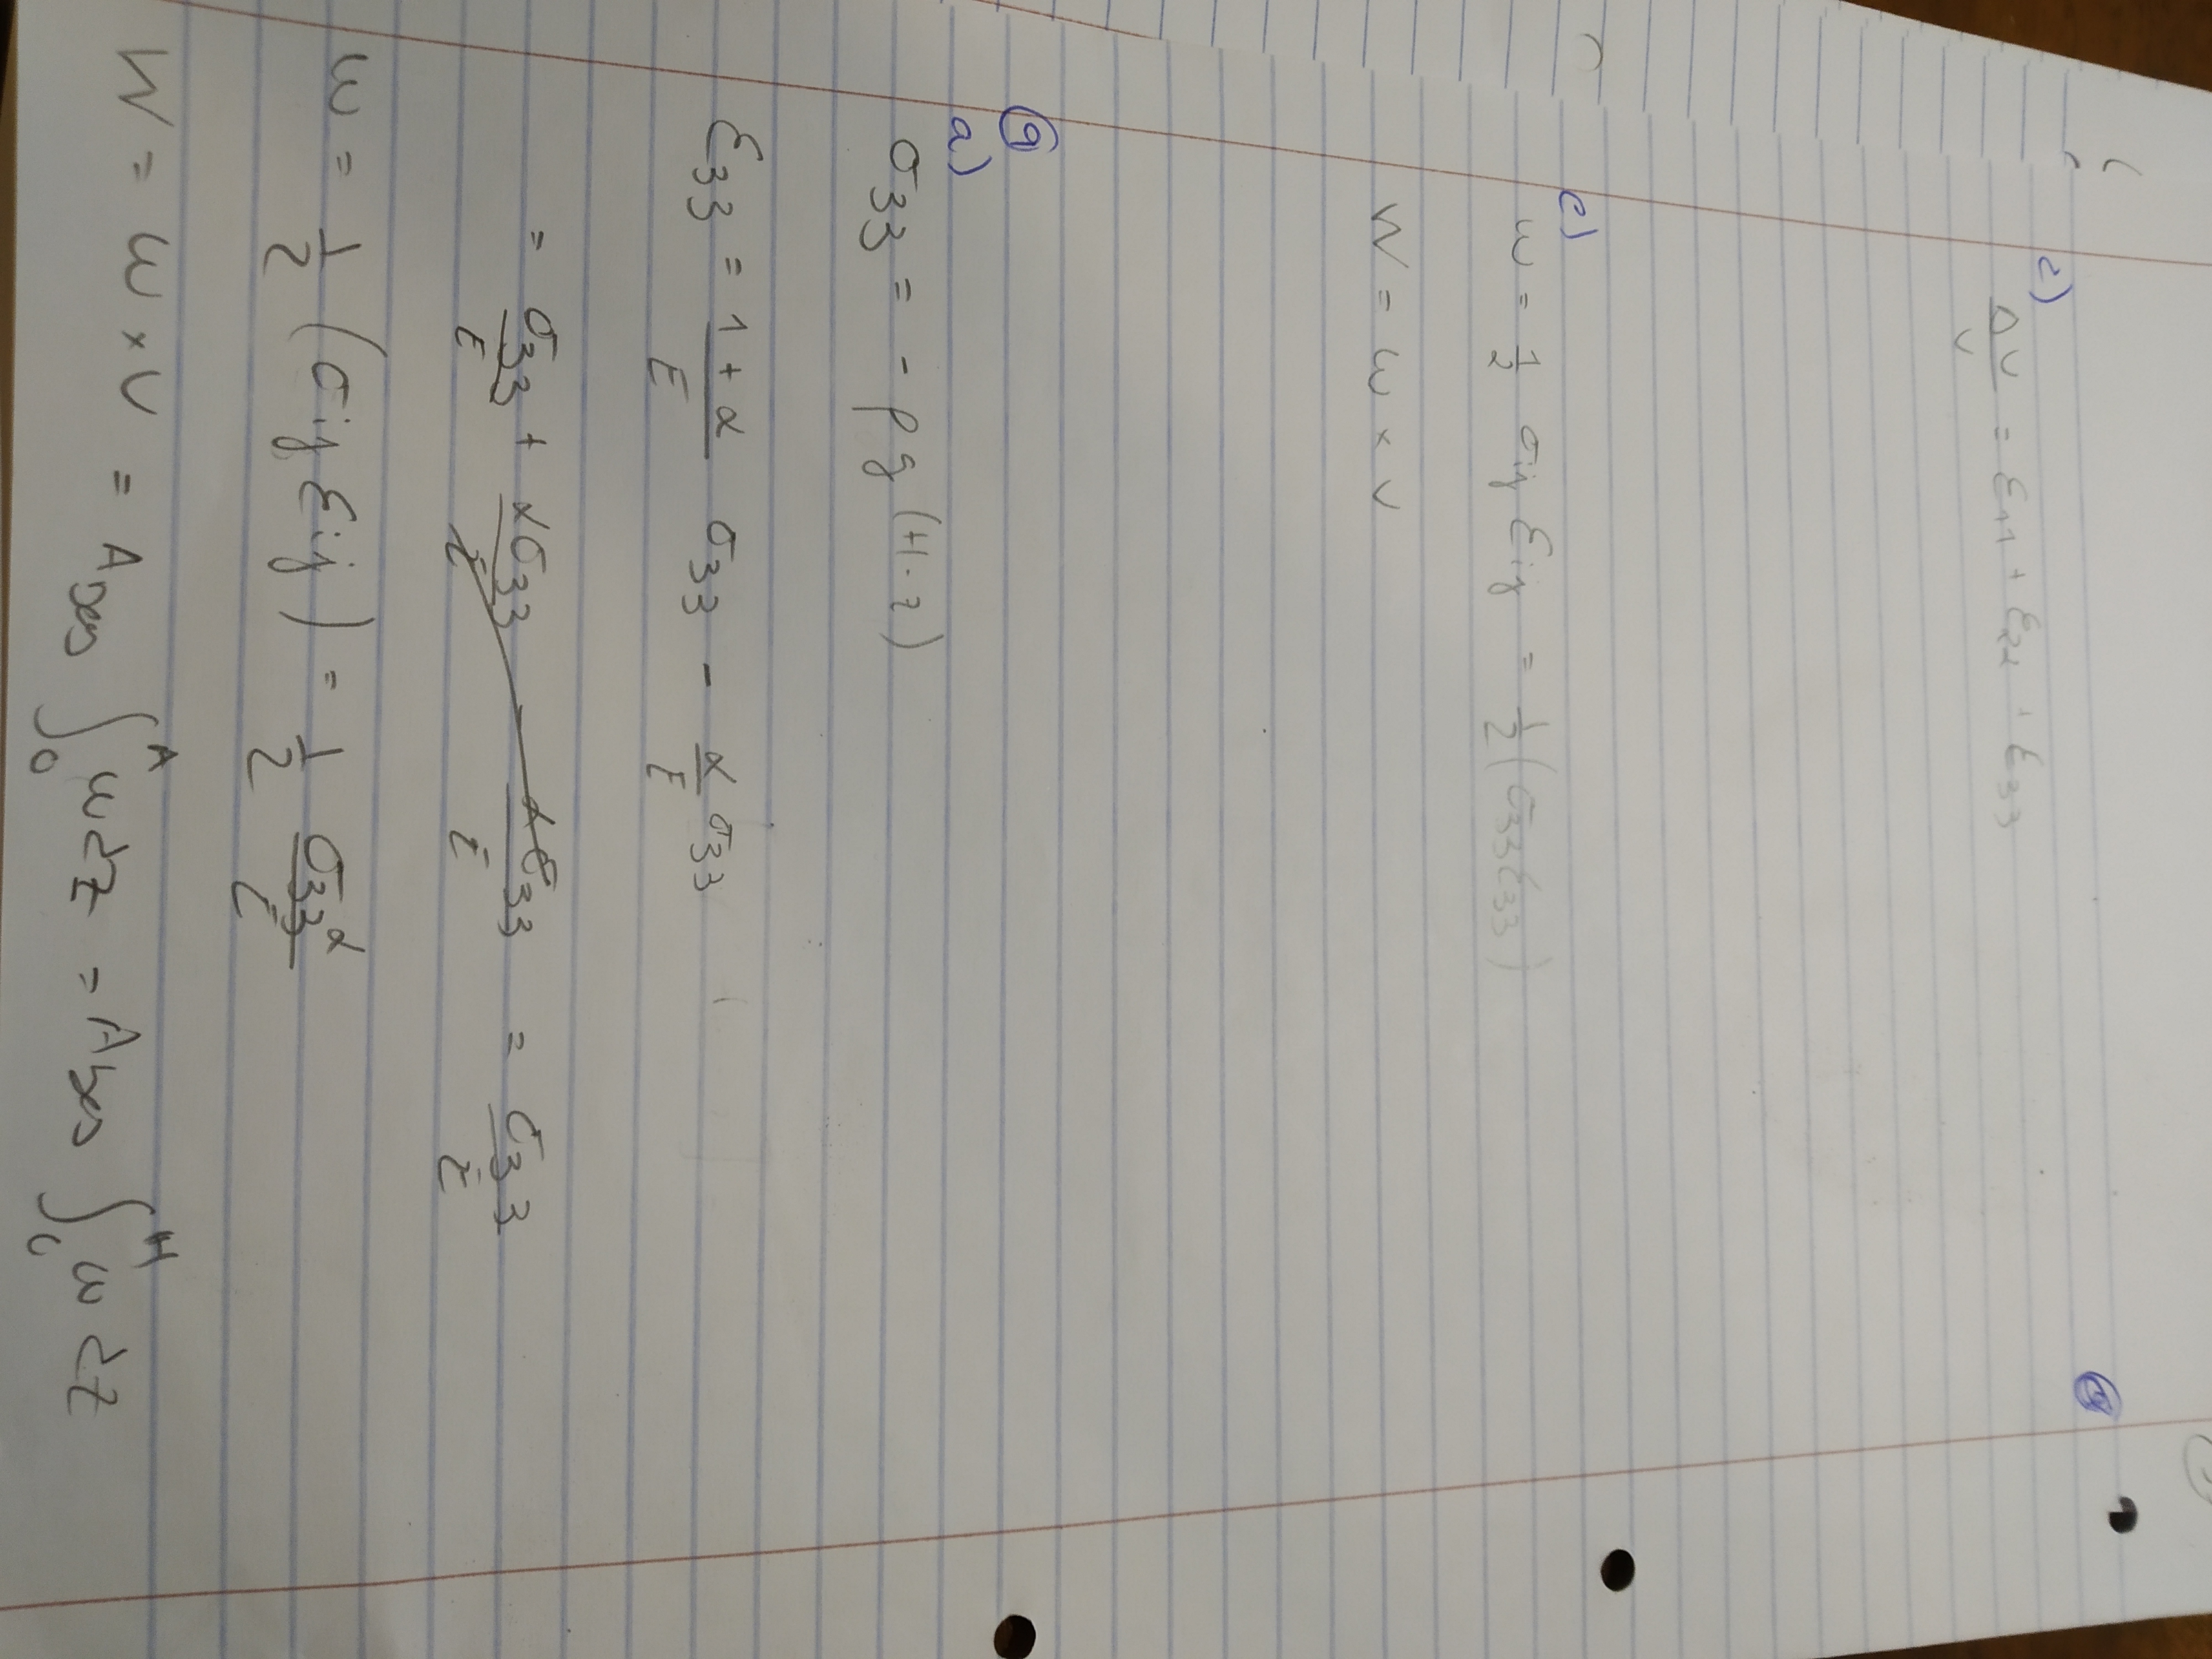 c)
ΔV/V = ε11 + ε22 + ε33
e)
w = 1/2 σij εij = 1/2 (σ33 ε33)
W = w × V
9
a)
σ33 = - ρg (H-z)
ε33 = (1 + α)/E σ33 - α/E σ33
= σ33/E + ασ33/E - ασ33/E = σ33/E
w = 1/2 (σij εij) = 1/2 σ33²/E
W = w × V = A ∫₀ᴬ w dz = A ∫₀ᴴ w dz